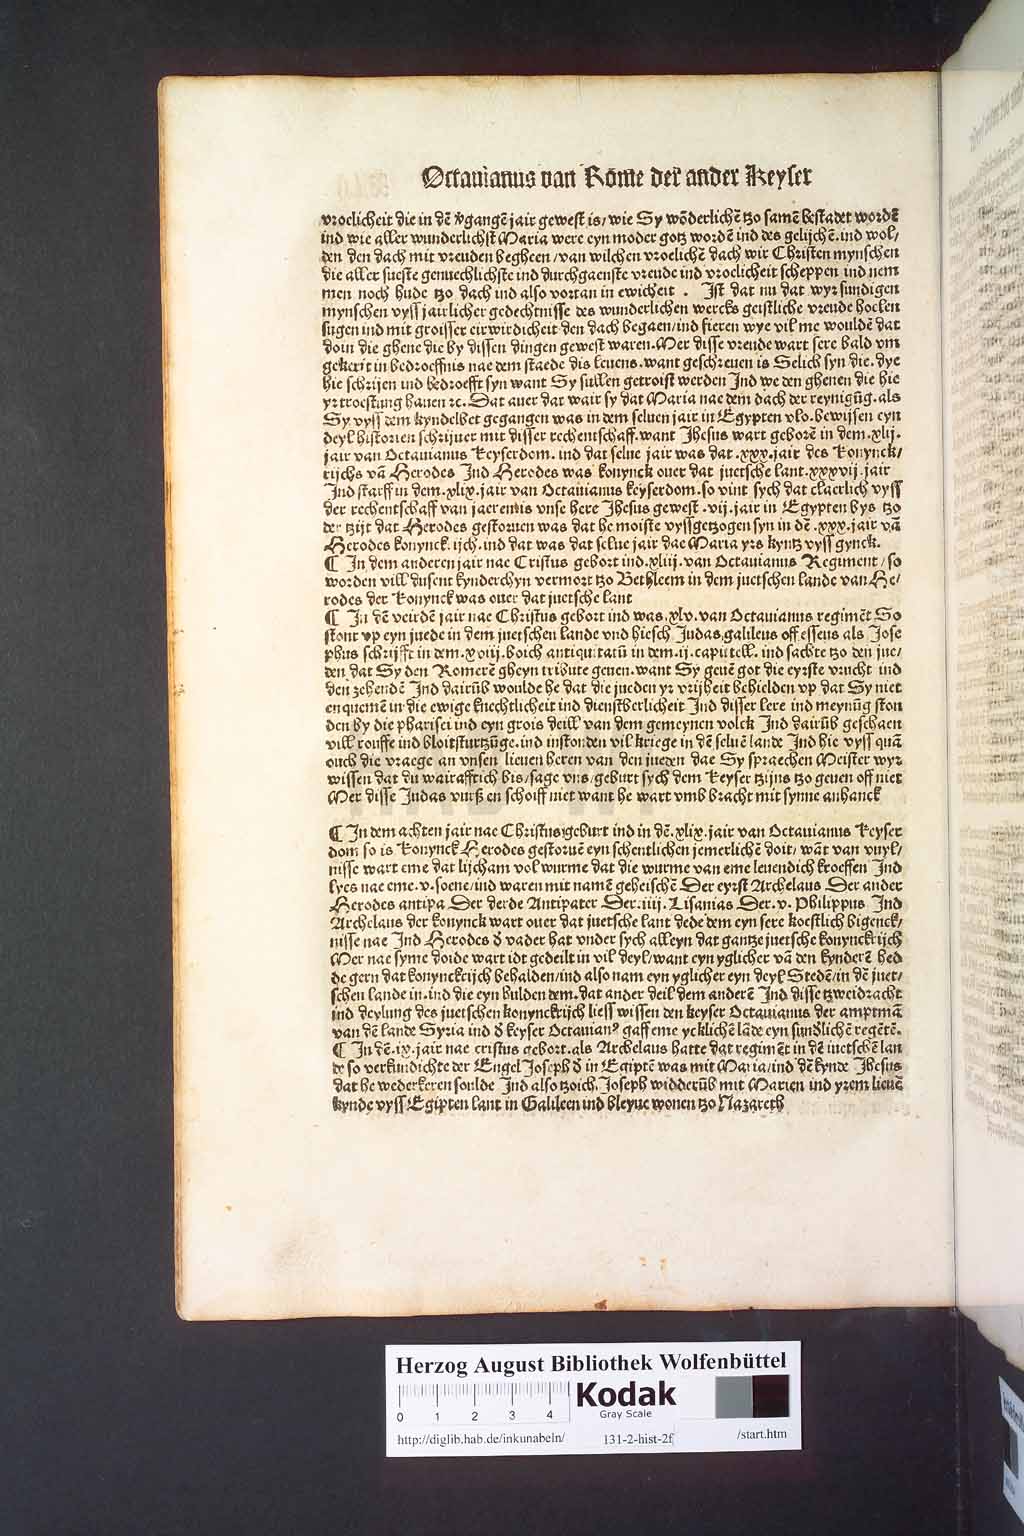 Octauianus van Röme der ander Keyser
vroelicheit die in dē v̄gangē jair gewest is/ wie Sy wōderlichē tzo samē bestadet wordē
ind wie aller wunderlichst Maria were eyn moder gotz wordē ind des gelijchē. ind wol/
den den dach mit vreuden begheen/ van wilchen vroelichē dach wir Christen mynschen
die aller sueste genuechlichste ind durchgaenste vreude ind vroelicheit scheppen ind nem
men noch hude tzo dach ind also vortan in ewicheit . Ist dat nu dat wyr sundigen
mynschen vyss jairlicher gedechtnisse des wunderlichen wercks geistliche vreude hoelen
sugen ind mit groisser eirwirdicheit den dach begaen/ ind fieren wye vil me wouldē dat
doin die ghene die by dissen dingen gewest waren. Mer disse vreude wart sere bald vm
gekeirt in bedroeffnis nae dem staede dis leuens. want geschreuen is Selich syn die. dye
hie schrijen ind bedroefft syn want Sy sullen getroist werden Ind we den ghenen die hie
yr troestung hauen ⁊c. Dat auer dat wair sy dat Maria nae dem dach der reynigūg. als
Sy vyss dem kyndelbet gegangen was in dem seluen jair in Egypten vlo. bewijsen eyn
deyl historien schrijuer mit disser rechentschaff. want Jhesus wart geborē in dem .xlij.
jair van Octauianus Keyserdom. ind dat selue jair was dat .xxx. jair des Konynck/
rijchs vā Herodes Ind Herodes was konynck ouer dat juetsche lant .xxxvij. jair
Ind starff in dem .xlix. jair van Octauianus keyserdom. so vint sych dat claerlich vyss
der rechentschaff van jaeren is vnse here Jhesus gewest .vij. jair in Egypten bys tzo
der tzijt dat Herodes gestoruen was dat he moiste vyssgetzogen syn in dē .xxx. jair vā
Herodes konynck. ijch. ind dat was dat selue jair dae Maria yrs kyntz vyss gynck.
¶ In dem anderen jair nae Cristus gebort ind .xliij. van Octauianus Regiment/ so
worden vill dusent kynderchyn vermort tzo Bethleem in dem juetschen lande van He/
rodes der Konynck was ouer dat juetsche lant
¶ In dē veirdē jair nae Christus gebort ind was .xlv. van Octauianus regimēt So
stont vp eyn juede in dem juetschen lande vnd hiesch Judas galileus off esseus als Jose
phus schrijfft in dem .xviij. boich antiquitatū in dem .ij. capittell. ind sachte tzo den jue/
den dat Sy den Romerē gheyn tribute geuen. want Sy geuē got die eyrste vrucht ind
den zehendē Ind dairūb woulde he dat die jueden yr vrijheit behielden vp dat Sy niet
en quemē in die ewige knechtlicheit ind dienstberlicheit Ind disser lere ind meynūg ston
den by die pharisei ind eyn grois deill van dem gemeynen volck Ind dairūb geschaen
vill rouffe ind bloitsturtzūge. ind instonden vil kriege in dē seluē lande Ind hie vyss quā
ouch die vraege an vnsen lieuen heren van den jueden dae Sy spraechen Meister wyr
wissen dat du wairafftich bis/ sage vns/ geburt sych dem Keyser tzijns tzo geuen off niet
Mer disse Judas vurß en schoiff niet want he wart vmb bracht mit synne anhanck
¶ In dem achten jair nae Christus geburt ind in dē .xlix. jair van Octauianus Keyser
dom so is Konynck Herodes gestoruē eyn schentlichen jemerlichē doit/ wāt van vuyl/
nisse wart eme dat lijcham vol wurme dat die wurme van eme leuendich kroeffen Ind
lyes nae eme .v. soene/ ind waren mit namē geheischē Der eyrst Archelaus Der ander
Herodes antipa Der derde Antipater Der .iiij. Lisanias Der .v. Philippus Ind
Archelaus der konynck wart ouer dat juetsche lant dede dem eyn sere koestlich bigenck/
nisse nae Ind Herodes d̄ vader hat vnder sych alleyn dat gantze juetsche konynckrijch
Mer nae syme doide wart idt gedeilt in vil deyl/ want eyn yglicher vā den kynderē hed
de gern dat konynckrijch behalden/ ind also nam eyn yglicher eyn deyl Stedē/ in dē juet/
schen lande in. ind die eyn hulden dem. dat ander deil dem anderē Ind disse tzweidracht
ind deylung des juetschen konynckrijch liess wissen den keyser Octauianus der amptmā
van dē lande Syria ind d̄ keyser Octauianꝰ gaff eme ycklichē lāde eyn sund̄lichē regētē.
¶ In dē .ix. jair nae cristus gebort. als Archelaus hatte dat regimēt in dē iuetschē lan
de so verkundichte der Engel Joseph d̄ in Egiptē was mit Maria/ ind dē kynde Jhesus
dat he wederkeren soulde Ind also tzoich. Joseph widderūb mit Marien ind yrem lieuē
kynde vyss Egipten lant in Galileen ind bleyue wonen tzo Nazareth
Herzog August Bibliothek Wolfenbüttel
0 1 2 3 4
Kodak
Gray Scale
http://diglib.hab.de/inkunabeln/ 131-2-hist-2f /start.htm